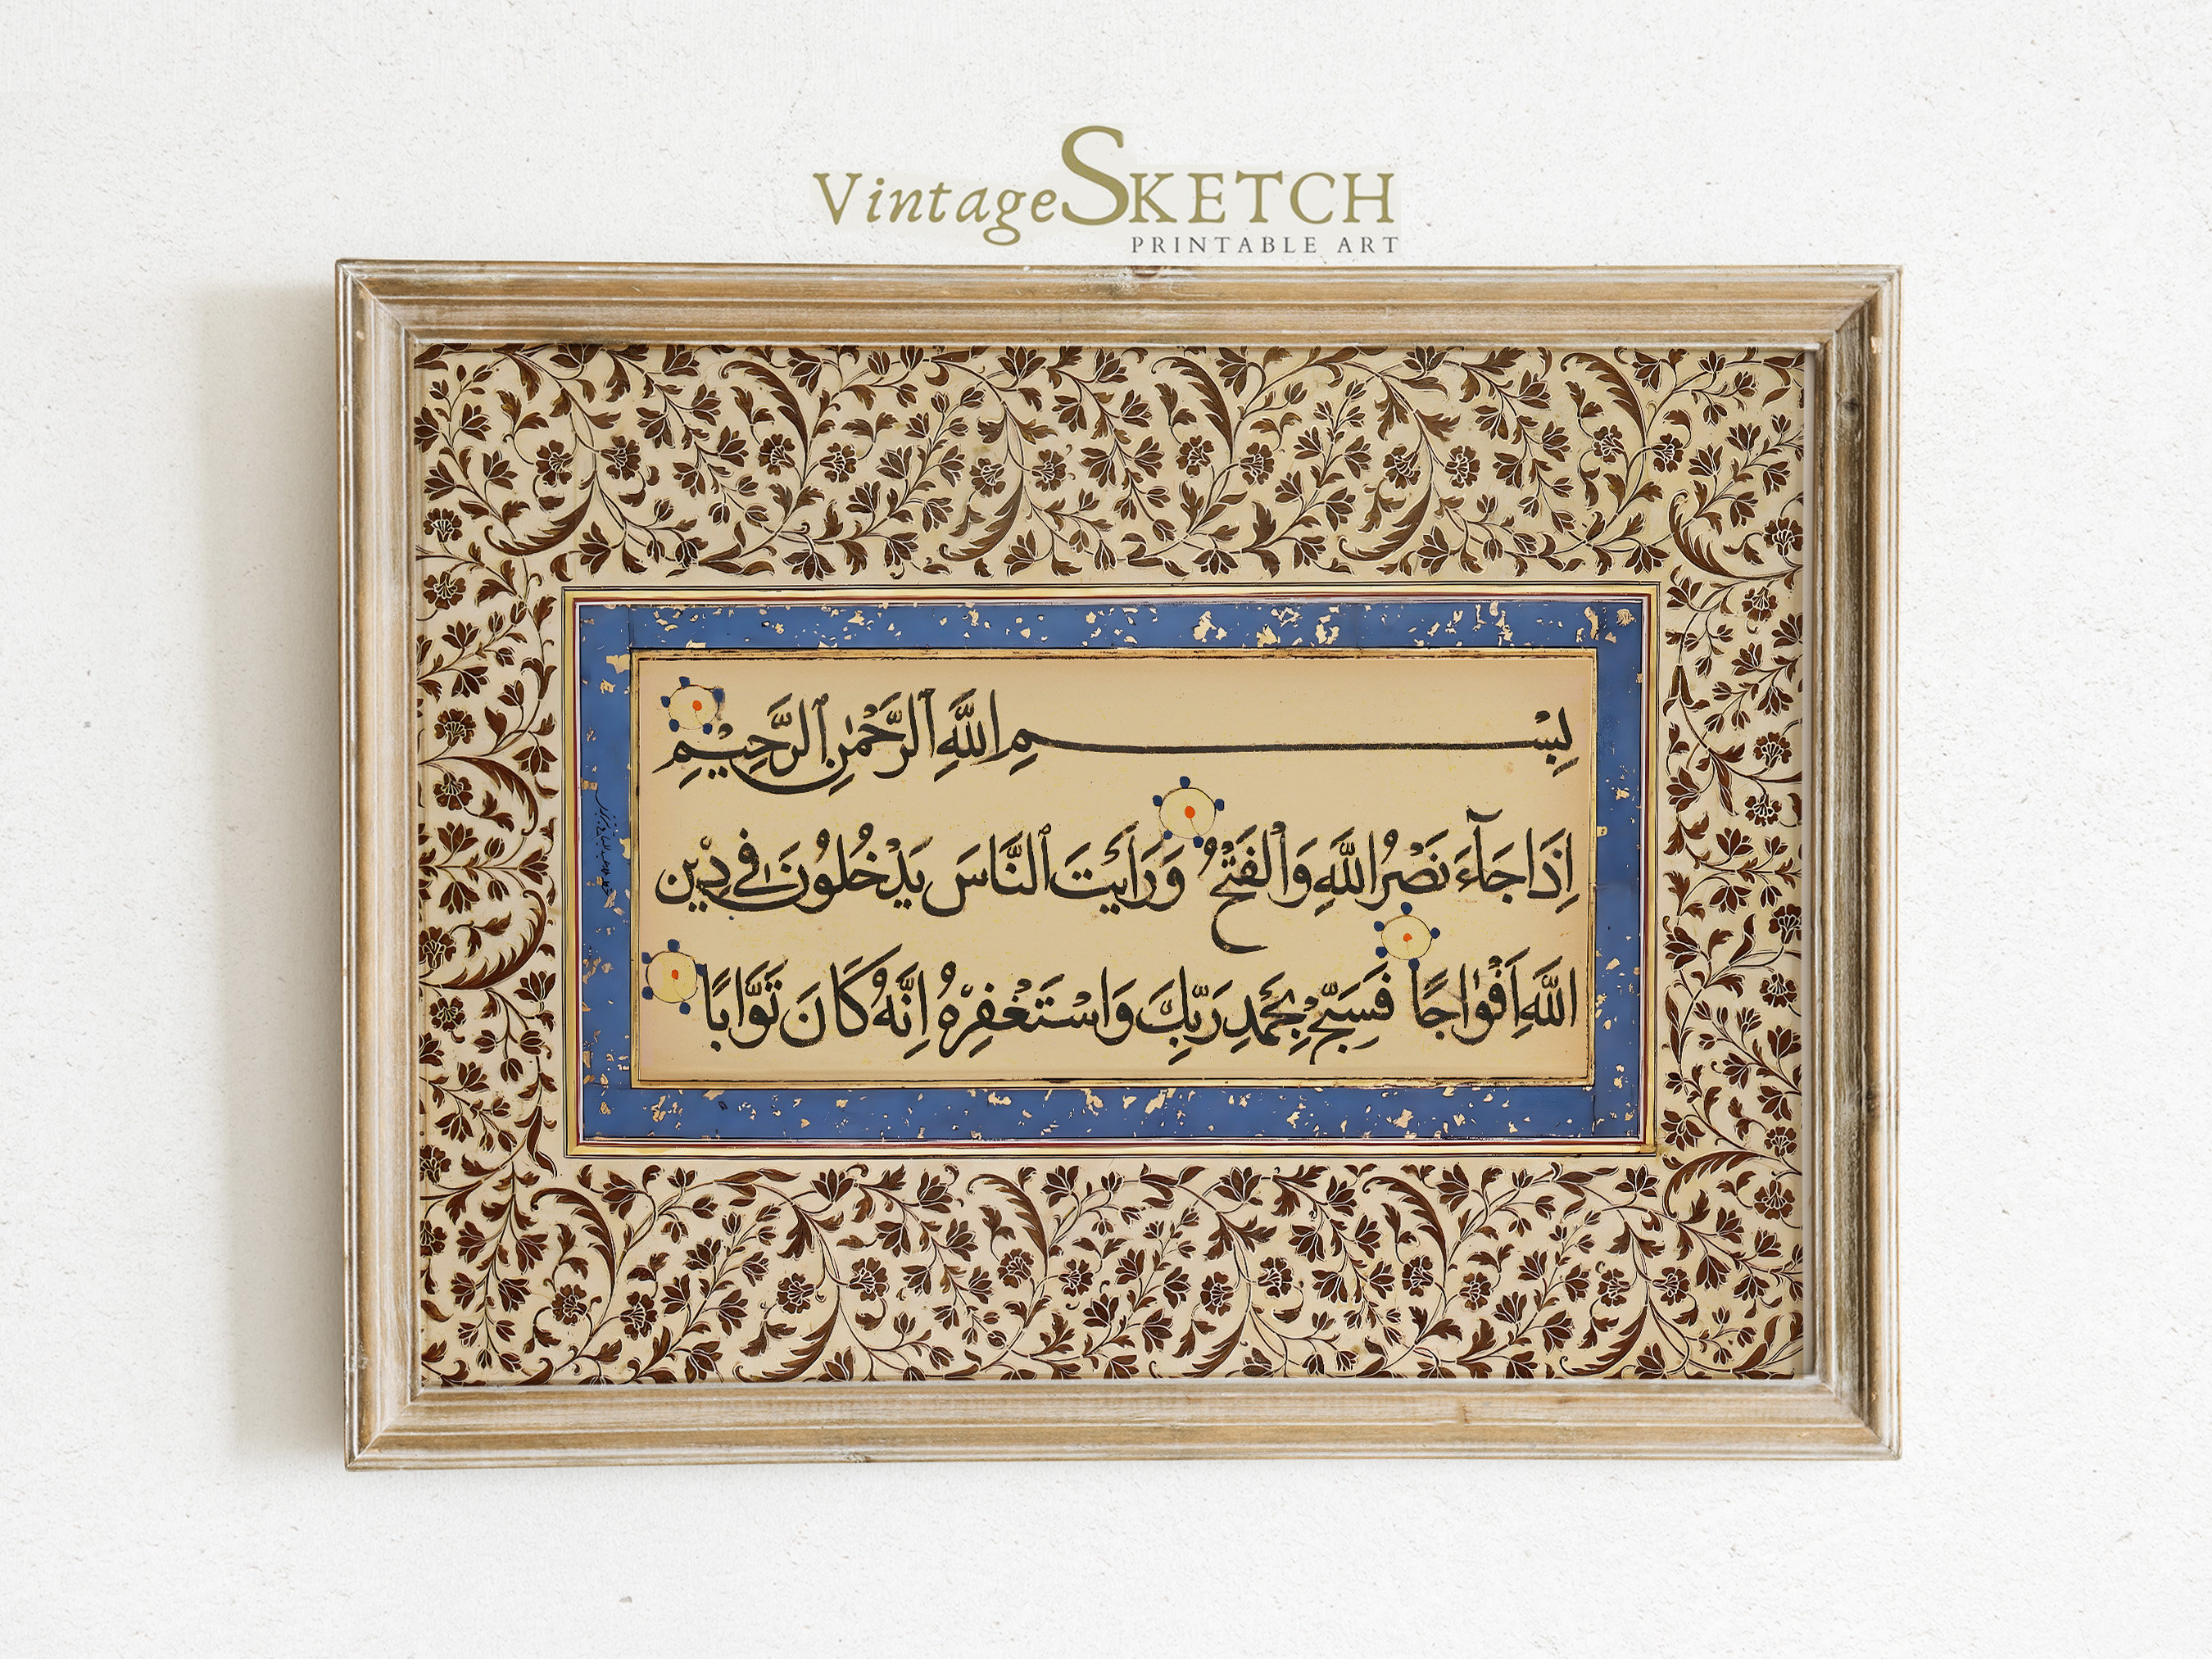 VintageSKETCH
PRINTABLE ART
بِسْمِ اللَّهِ ٱلرَّحْمٰنِ ٱلرَّحِيْمِ
اِذَا جَآءَ نَصْرُ اللَّهِ وَٱلْفَتْحُ وَرَأَيْتَ ٱلنَّاسَ يَدْخُلُوْنَ فِيْ دِيْنِ
اللَّهِ اَفْوَاجًا فَسَبِّحْ بِحَمْدِ رَبِّكَ وَاسْتَغْفِرْهُ اِنَّهُ كَانَ تَوَّابًا